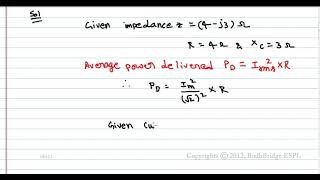 Sol
Given impedance z = (4-j3) Ω
R = 4Ω & Xc = 3Ω
Average power delivered P_D = I²rms × R
∴ P_D = I_m²/(√2)² × R
Given Cu
Copyright © 2012, BodhBridge ESPL